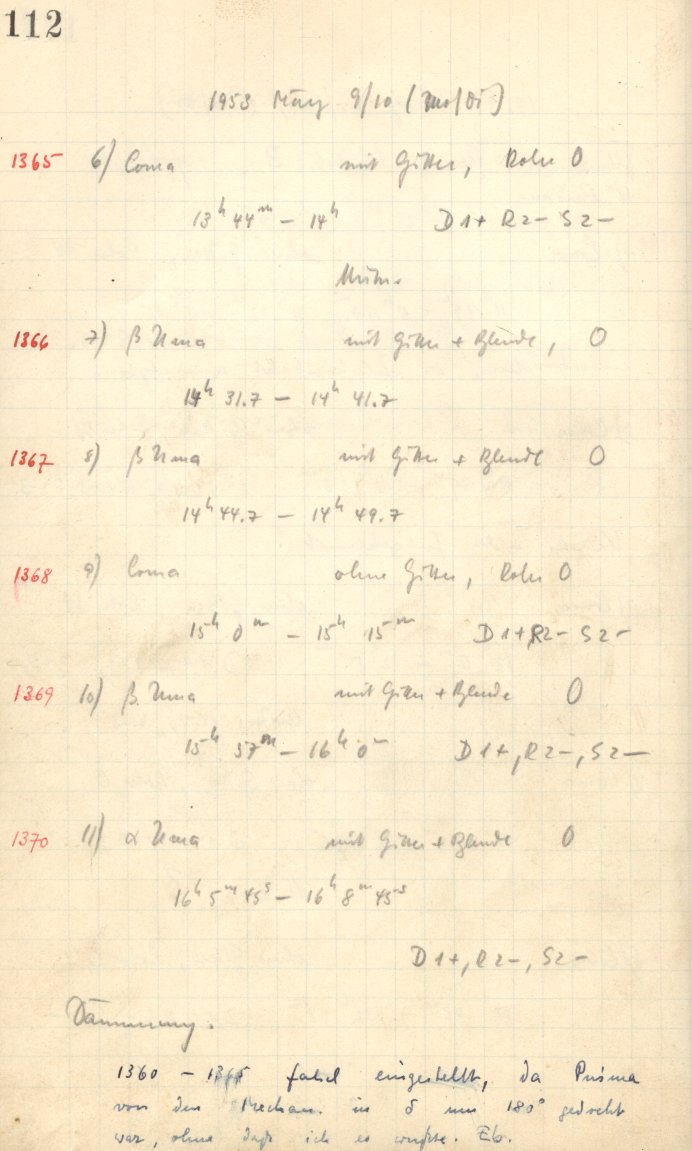 112
1953 März 9/10 (Mo/Di)
1365 6) Coma mit Gitter, Rohr O
13h 44m – 14h D1+ R2– S2–
1366 7) β Uma mit Gitter + Blende, O
14h 31.7 – 14h 41.7
1367 8) β Uma mit Gitter + Blende O
14h 44.7 – 14h 49.7
1368 9) Coma ohne Gitter, Rohr O
15h 0m – 15h 15m D1+, R2– S2–
1369 10) β Uma mit Gitter + Blende O
15h 57m – 16h 0m D1+, R2–, S2–
1370 11) α Uma mit Gitter + Blende O
16h 5m 45s – 16h 8m 45s
D1+, R2–, S2–
Dämmerung.
1360 – 1365 falsch eingestellt, da Prisma
von den Mechan. in δ um 180° gedreht
war, ohne daß ich es wußte. Eb.